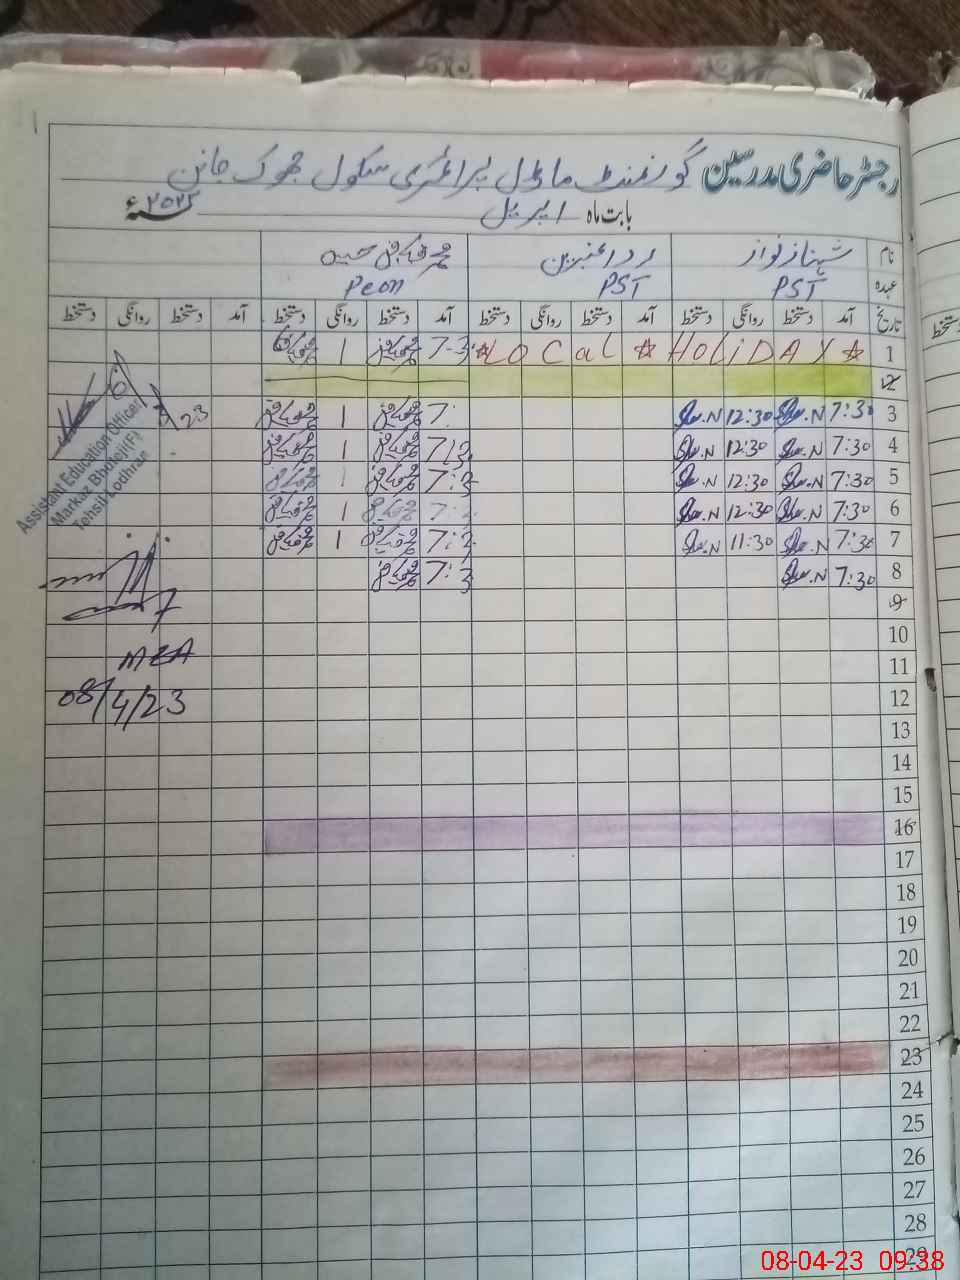 رجسٹر حاضری مدرسین گورنمنٹ ماڈل پرائمری سکول جھوک جانن
بابت ماہ اپریل ۲۰۲۳ء
نام شہناز نواز
عہدہ PST PST Peon
تاریخ آمد دستخط روانگی دستخط آمد دستخط روانگی دستخط آمد دستخط روانگی دستخط آمد دستخط روانگی دستخط
1 LOCaL HOLiDAY 1
2
3 7:30 Sh.N 12:30 Sh.N 7: 1
4 7:30 Sh.N 12:30 Sh.N 1
5 7:30 Sh.N 12:30 Sh.N 7:3 1
6 7:30 Sh.N 12:30 Sh.N 1
7 7:30 Sh.N 11:30 Sh.N 7:3 1
8 7:30 Sh.N 7:3
9
10
11
12
13
14
15
16
17
18
19
20
21
22
23
24
25
26
27
28
29
23
Assistant Education Officer
Markaz Bhuteji(F)
Tehsil Lodhran
MEA
08/4/23
دستخط
08-04-23 09:38